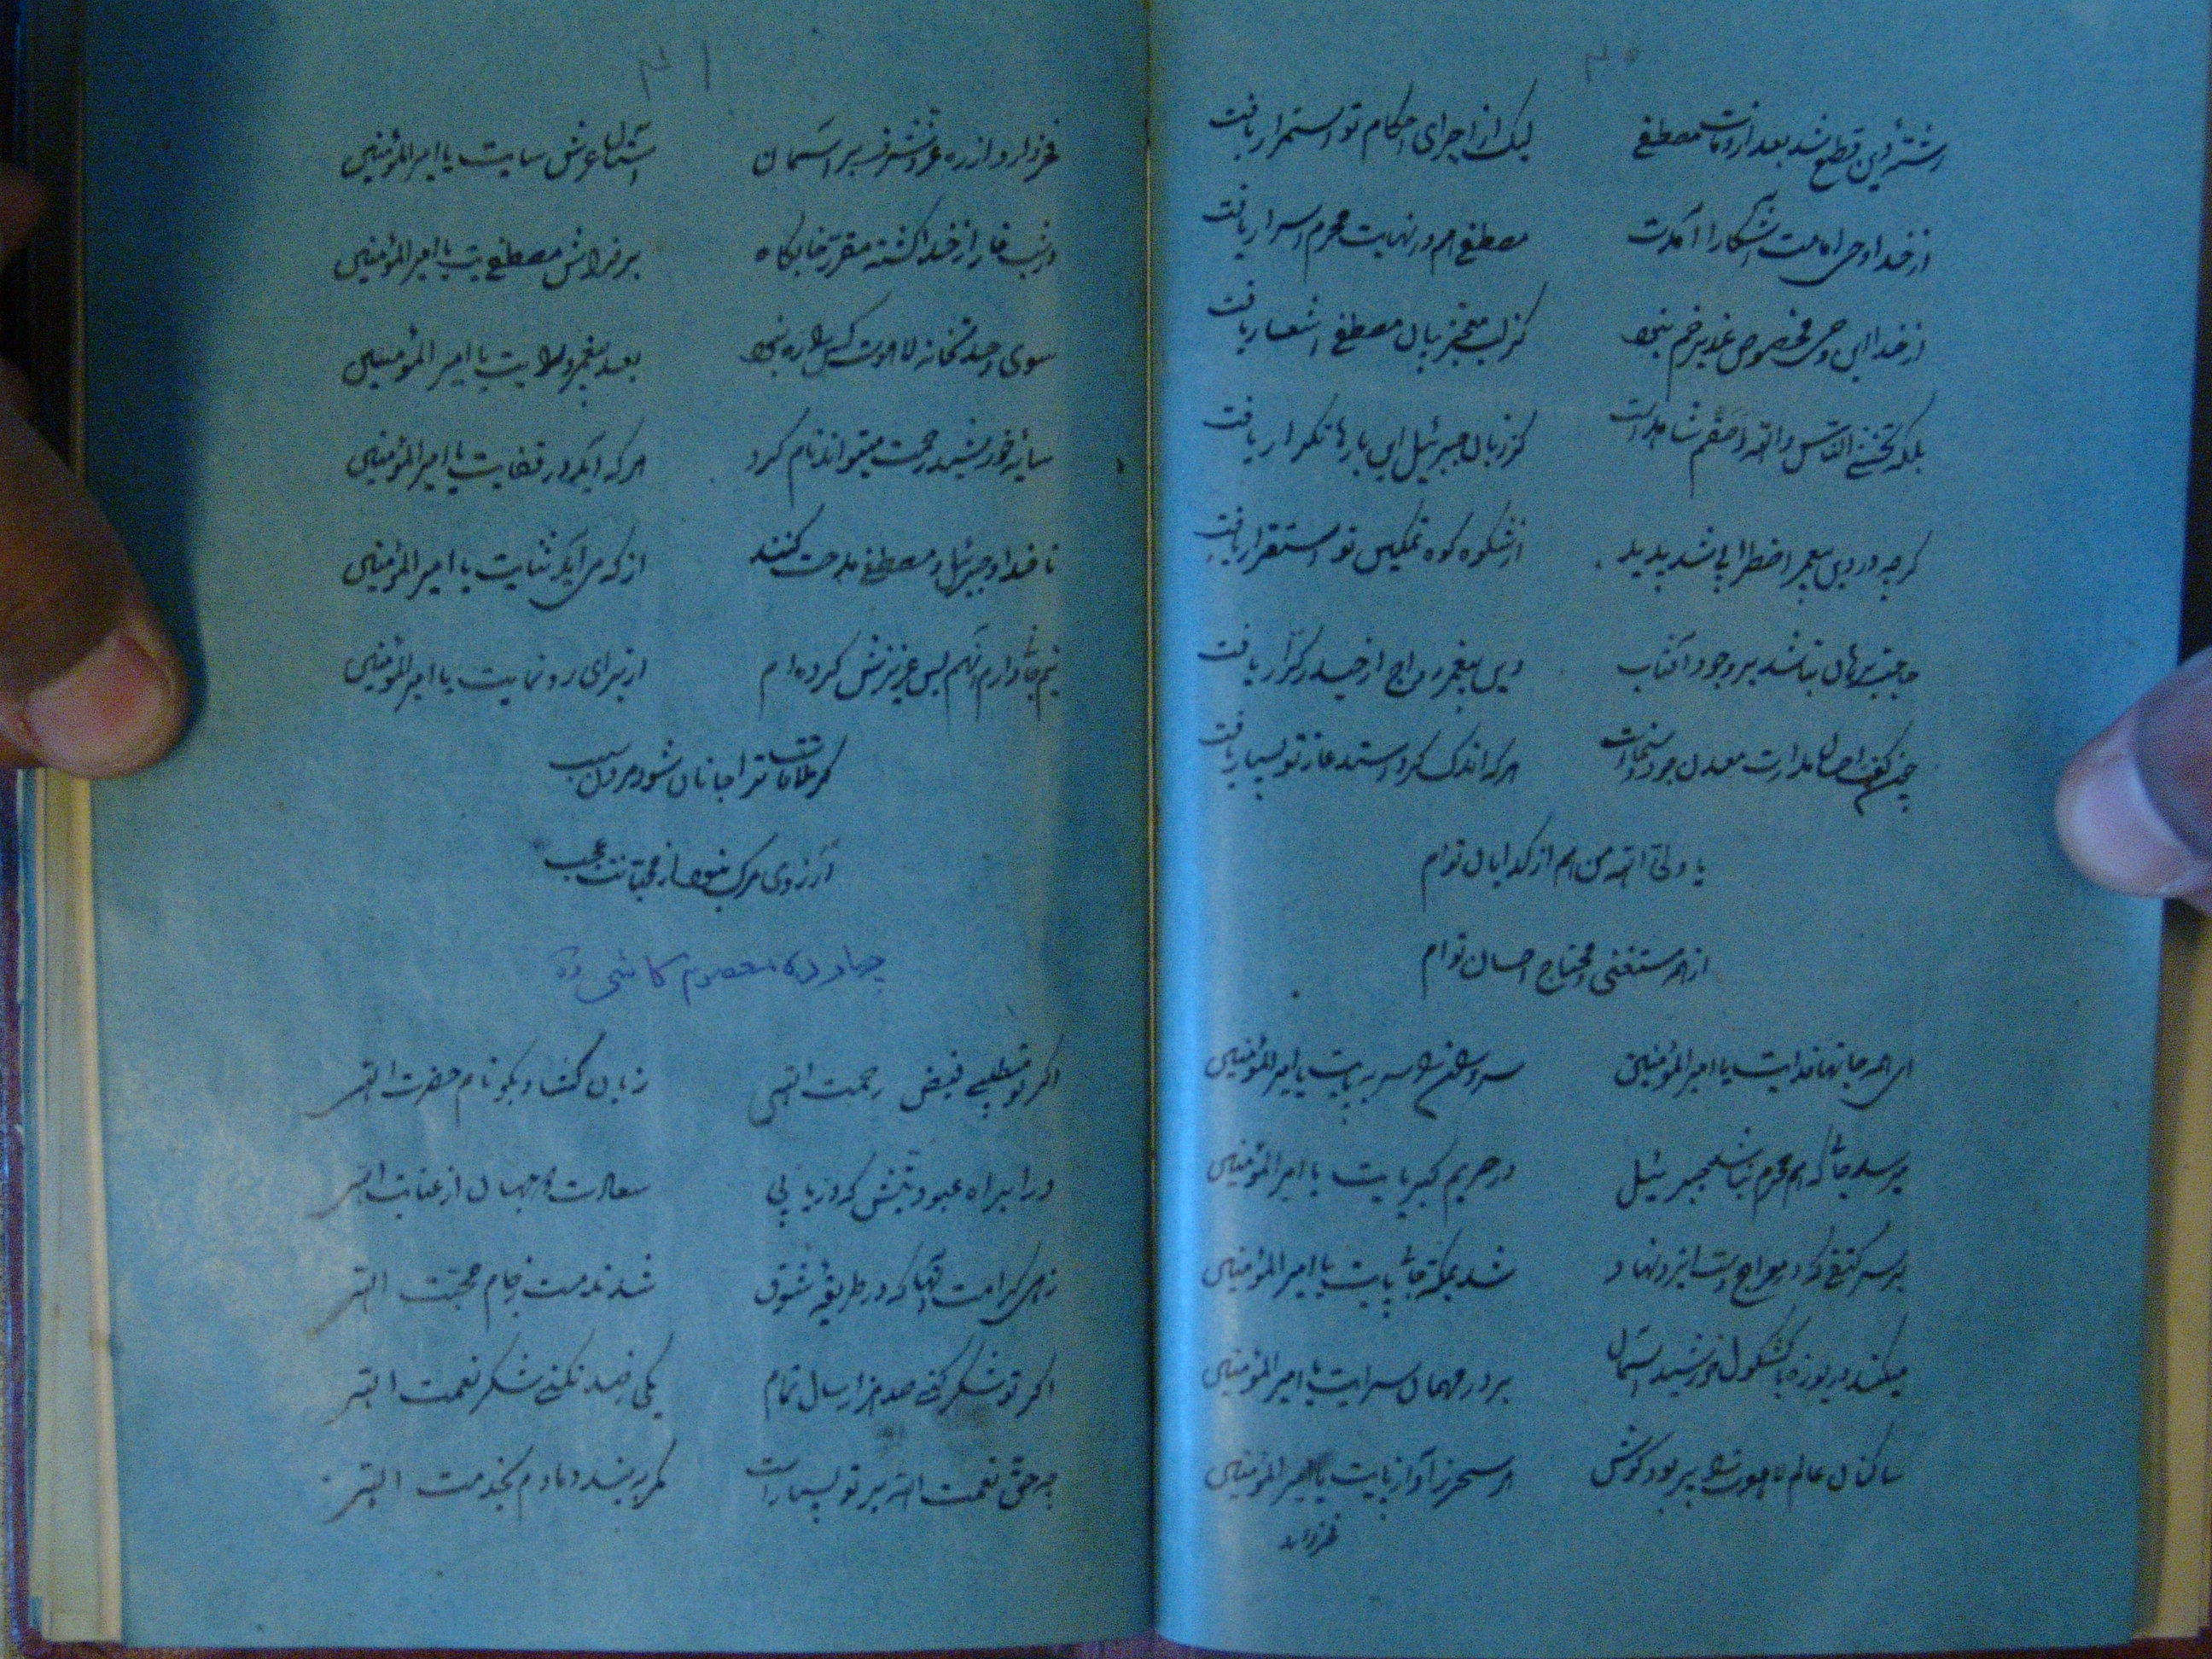 ۳۰
رشتهٔ دین قطع شد بعد از وفات مصطفی لیک از اجرای احکام تو استمرار یافت
از خدا وحی امامت آشکارا آمدت مصطفی هم در نهایت محرم اسرار یافت
از خدا این وحی مخصوص غدیر خم نبود کز لب معجز بیان مصطفی اشعار یافت
بلکه تخشی الناس والله شاهد است کز زبان جبرئیل این بارها تکرار یافت
گرچه در دین پیمبر اضطرابها شد پدید از شکوه کوه تمکین تو استقرار یافت
حاجت برهان نباشد بر وجود آفتاب دین پیغمبر رواج از حیدر کرار یافت
چون کف احسان مدارت معدن جود و سخاست هر که اندک کرد استدعا ز تو بسیار یافت
یا ولی الله من هم از گدایان توام
از همه مستغنی و محتاج احسان توام
ای همه جانها فدایت یا امیر المؤمنین سروران را سر به پایت یا امیر المؤمنین
میرسد جائی که هم محرم نباشد جبرئیل در حریم کبریایت یا امیر المؤمنین
بر سر کتفی که در معراج دست ایزد نهاد شد بمکه جای پایت یا امیر المؤمنین
میکند دریوزه با کشکول خورشید آسمان بر در مهمان سرایت یا امیر المؤمنین
ساکنان عالم لاهوت را پر بود گوش هر سحر ز آواز پایت یا امیر المؤمنین
۳۱
از ره عز و شرف بر آسمان آستان عرش سایت یا امیر المؤمنین
در شب غار از خدا گشته مقرر خوابگاه بر فراش مصطفایت یا امیر المؤمنین
سوی وحدتخانه لاهوت کس را ره نبود بعد پیغمبر ولایت یا امیر المؤمنین
سایهٔ خورشید رحمت میتواند نام کرد هر که آید در قفایت یا امیر المؤمنین
تا خدا و جبرئیل و مصطفی مدحت کنند از که می آید ثنایت یا امیر المؤمنین
نیم جانی دارم و آنهم بس عزیزش کرده ام از برای رونمایت یا امیر المؤمنین
گر ملاقات ترا جانان شود مردن سبب
آرزوی مرگ نبود از محبانت عجب
چهارده معصوم کاشی
اگر تو میطلبی فیض رحمت الله زبان گشا و بگو نام حضرت الله
درا براه عبودیتش که دریابی سعادت دو جهان از عنایت الله
زهی کرامت آنها که در طریقهٔ شوق شدند مست ز جام محبت الله
اگر تو شکر کنی صد هزار سال تمام یکی ز صد نکنی شکر نعمت الله
چه حق نعمت الله بر تو بسیار است کمر ببند دمادم بخدمت الله